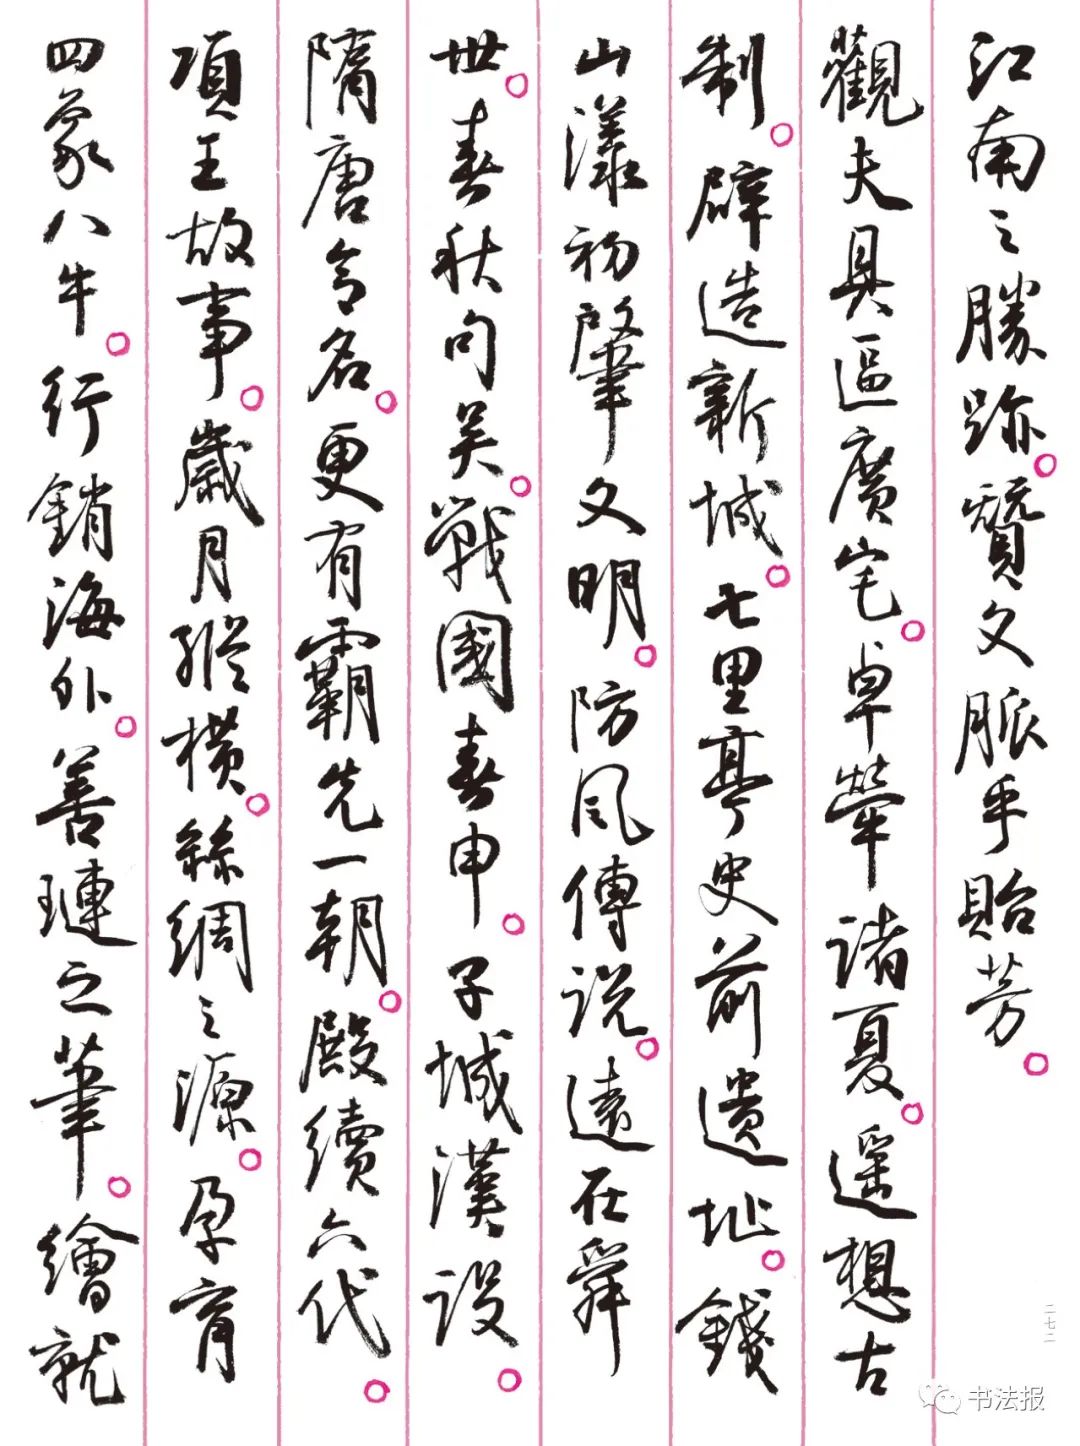 江南之勝跡。贊文脈乎貽芳。
觀夫具區廣宅。卓犖諸夏。遥想古
制。辟造新城。七里亭史前遺址。錢
山漾初肇文明。防風傳説。遠在舜
世。春秋句吴。戰國春申。子城漢設。
隋唐令名。更有霸先一朝。殿續六代。
項王故事。歲月縱橫。絲綢之源。孕育
四象八牛。行銷海外。善璉之筆。繪就
二七二
书法报